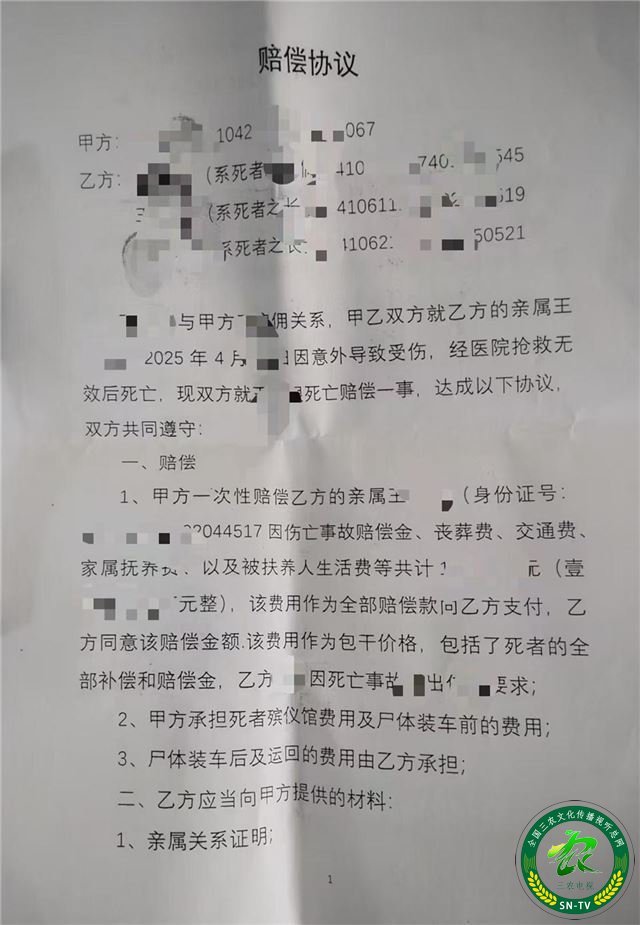 赔偿协议
甲方: 1042 067
乙方: (系死者 410 740 545
(系死者之长 410611 519
系死者之长 410621 50521
与甲方 佣关系，甲乙双方就乙方的亲属王
2025 年 4 月 日因意外导致受伤，经医院抢救无
效后死亡，现双方就 死亡赔偿一事，达成以下协议，
双方共同遵守:
一、赔偿
1、甲方一次性赔偿乙方的亲属王 (身份证号:
22044517 因伤亡事故赔偿金、丧葬费、交通费、
家属抚养费、以及被扶养人生活费等共计 1 元（壹
元整），该费用作为全部赔偿款向乙方支付，乙
方同意该赔偿金额.该费用作为包干价格，包括了死者的全
部补偿和赔偿金，乙方 因死亡事故 出 要求;
2、甲方承担死者殡仪馆费用及尸体装车前的费用;
3、尸体装车后及运回的费用由乙方承担;
二、乙方应当向甲方提供的材料:
1、亲属关系证明;
1
全国三农文化传播视听总网
三农电视
SN-TV